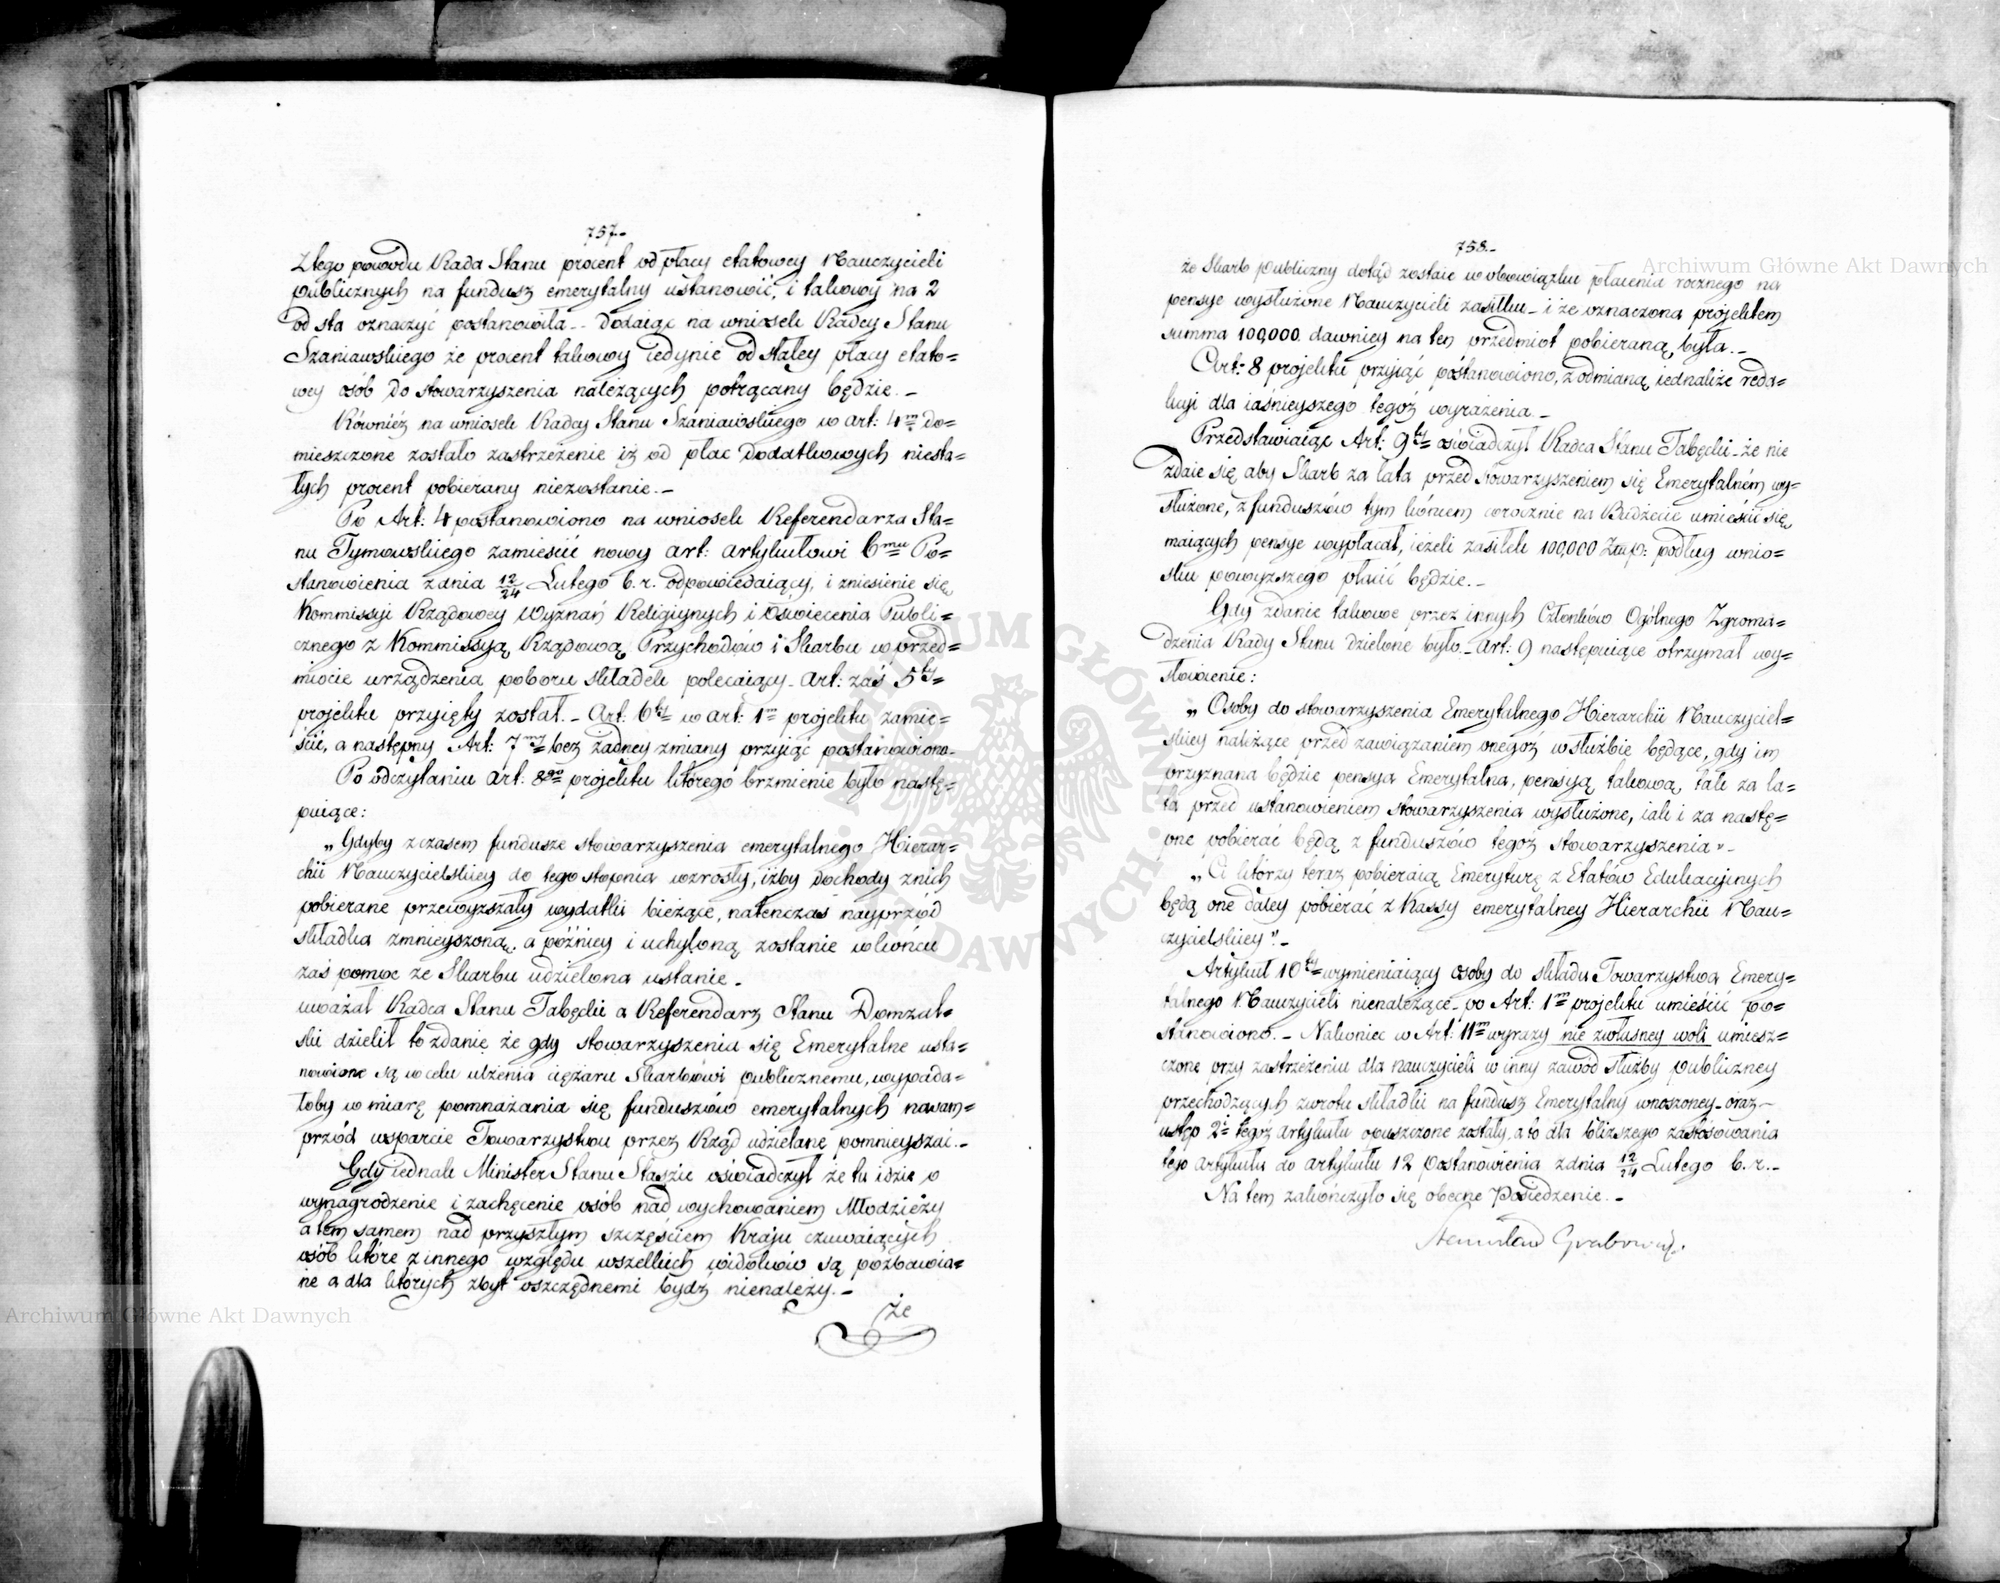 757.-
Ztego powodu Rada Stanu procent od płacy etatowey Nauczycieli
publicznych na fundusz emerytalny ustanowić, i takowy na 2
od sta oznaczyć postanowiła - Dodaiąc na wniosek Radcy Stanu
Szaniawskiego że procent takowy iedynie od stałey płacy etato=
wey osób do stowarzyszenia należących potrącany będzie.-
Również na wniosek Radcy Stanu Szaniawskiego w art: 4m do=
mieszczone zostało zastrzeżenie iż od płac Dodatkowych niesta=
łych procent pobierany niezostanie.-
Po Art: 4 postanowiono na wniosek Referendarza Sta=
nu Tymowskiego zamieścić nowy art: artykułowi 6mu Po=
stanowienia z dnia 12/24 Lutego b.r. odpowiedaiący, i zniesienie się
Kommissyi Rządowey Wyznań Religiynych i Oświecenia Publi=
cznego z Kommissyą Rządową Przychodów i Skarbu w przed=
miocie urządzenia poboru składek polecaiący - Art: zaś 5ty=
projektu przyięty został.- Art: 6ty w art: 1m projektu zamie=
ścić, a następny Art: 7my bez żadney zmiany przyiąć postanowiono-
Po odczytaniu art: 8go projektu którego brzmienie było nastę=
puiące:
„Gdyby z czasem fundusze stowarzyszenia emerytalnego Hierar=
chii Nauczycielskiey do tego stopnia wzrosły, iżby dochody z nich
pobierane przewyższały wydatki bieżące, natenczas nayprzód
składka zmnieyszoną, a późniey i uchyloną zostanie w końcu
zaś pomoc ze Skarbu udzielona ustanie.
uważał Radca Stanu Tabęcki a Referendarz Stanu Domzal=
ski dzielił to zdanie że gdy stowarzyszenia się Emerytalne usta=
nowione są w celu ulżenia ciężaru Skarbowi publicznemu, wypada=
łoby w miarę pomnażania się funduszów emerytalnych naxam=
przód wsparcie Towarzystwu przez Rząd udzielane pomnieyszać.-
Gdy iednak Minister Stanu Staszic oświadczył że tu idzie o
wynagrodzenie i zachęcenie osób nad wychowaniem Młodzieży
a tem samem nad przyszłym szczęściem Kraju czuwaiących
osób które z innego względu wszelkich widoków są pozbawio=
ne a dla których zbyt oszczędnemi bydź nienależy.-
że
758.-
że Skarb publiczny dotąd zostaie w obowiązku płacenia rocznego na
pensye wysłużone Nauczycieli zasiłku - i że oznaczona projektem
summa 100,000 dawniey na ten przedmiot pobieraną była.-
Art: 8 projektu przyiąć postanowiono, z odmianą iednakże reda=
kcyi dla iaśnieyszego tegoż wyrażenia.-
Przedstawiaiąc Art: 9ty oświadczył Radca Stanu Tabęcki - że nie
zdaie się aby Skarb za lata przed stowarzyszeniem się Emerytalném wy=
służone, z funduszów tym końcem corocznie na Budżecie umieścić się
maiących pensye wypłacał, ieżeli zasiłek 100,000 Złp: podług wnio=
sku powyższego płacić będzie.-
Gdy zdanie takowe przez innych Członków Ogólnego Zgroma=
dzenia Rady Stanu dzielone było - Art: 9 następuiące otrzymał wy=
słowienie:
„Osoby do stowarzyszenia Emerytalnego Hierarchii Nauczyciel=
skiey należące przed zawiązaniem onegoż w służbie będące, gdy im
przyznana będzie pensya Emerytalna, pensyą takową, tak za la=
ta przed ustanowieniem stowarzyszenia wysłużone, iak i za nastę=
pne pobierać będą z funduszów tegoż stowarzyszenia”-
„Ci którzy teraz pobieraią Emeryturę z Etatów Edukacyinych
będą one daley pobierać z Kassy emerytalney Hierarchii Nau=
czycielskiey”.-
Artykuł 10ty wymieniaiący osoby do składu Towarzystwa Emery=
talnego Nauczycieli nienależące po Art: 1m projektu umieścić po=
stanowiono.- Nakoniec w Art: 11m wyrazy nie zwłasney woli umiesz=
czone przy zastrzeżeniu dla nauczycieli w inny zawód służby publiczney
przechodzących zwrotu składki na fundusz Emerytalny wnoszoney - oraz
ustęp 2i tegoż artykułu opuszczone zostały, a to dla bliższego zastosowania
tego artykułu do artykułu 12 Postanowienia z dnia 12/24 Lutego b.r.-
Na tem zakończyło się obecne Posiedzenie.-
Stanisław Grabowski.